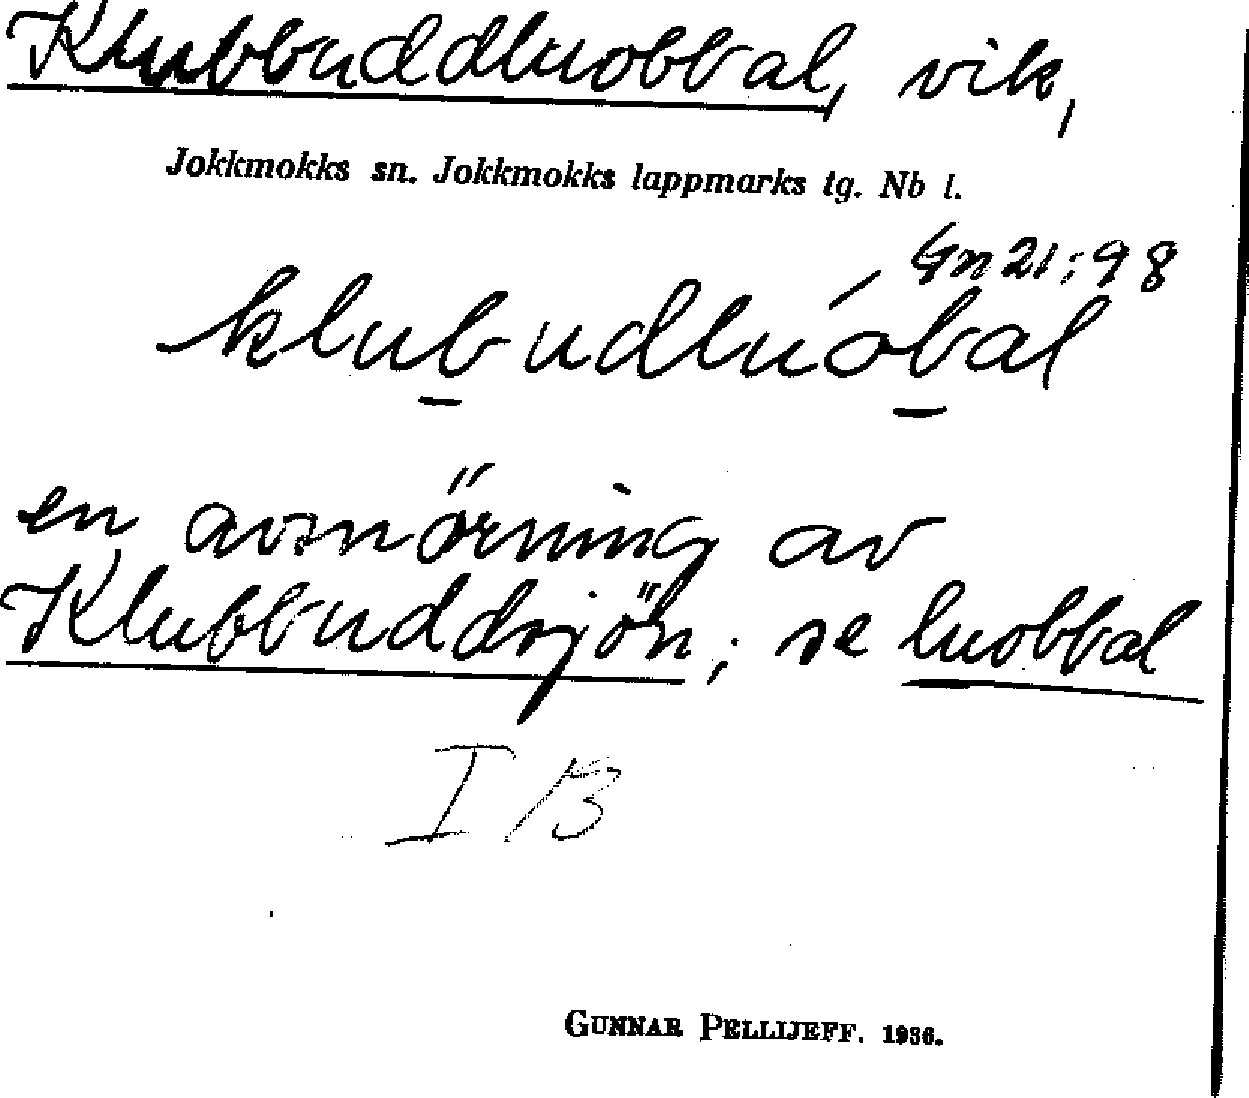 Klubbuddluobbal, vik,
Jokkmokks sn. Jokkmokks lappmarks tg. Nb l.
Gn 21:98
klubudlúobal
en avsnörning av
Klubbuddsjön; se luobbal
I B
GUNNAR PELLIJEFF. 1936.